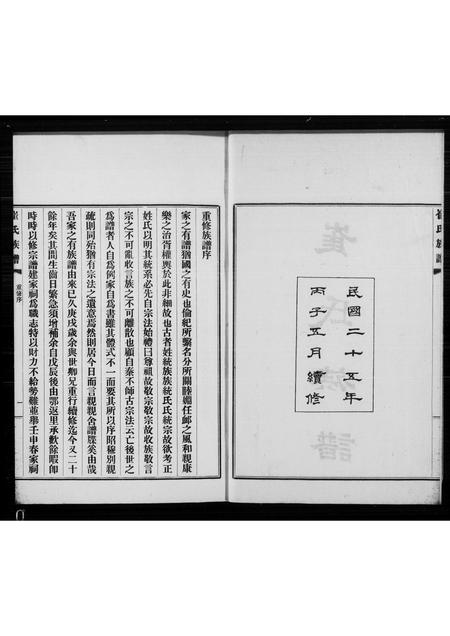 崔氏族譜
民國二十五年
丙子五月續修
重修族譜序
家之有譜猶國之有史也倫紀所繫名分所關睦婣任卹之風和親康
樂之治胥權輿於此非細故也古者姓統族族統氏氏統宗故欲考正
姓氏以明其統系必先自宗法始禮曰尊祖故敬宗敬宗故收族敬言
宗之不可亂收言族之不可離散也顧自秦不師古宗法云亡後世之
為譜者人自為例家自為書雖其體式不一而要其所以序昭穆別親
疏則同殆猶有宗法之遺意焉然則居今日而言親親舍譜牒奚由哉
吾家之有族譜由來已久庚戌歲余與世卿兄重行續修迄今又二十
餘年矣其間生齒日繁急須增補余自戊辰後由鄂返里承歡餘暇即
時時以修宗譜建家祠為職志特以財力不給勞難並舉壬申春家祠
崔氏族譜
重修序
一